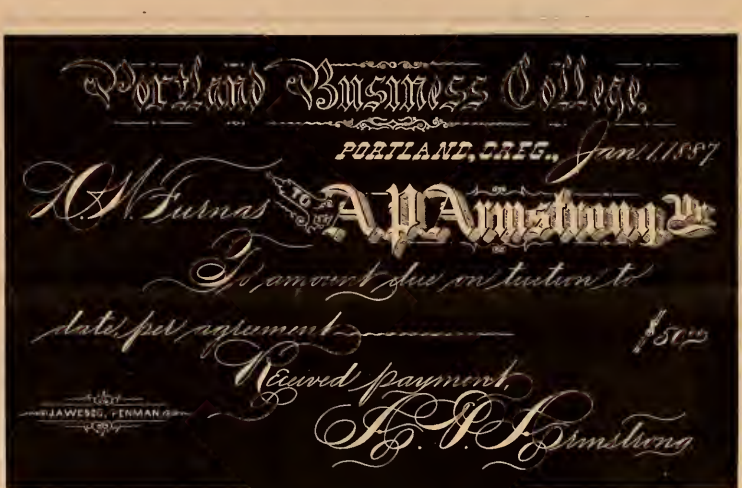 Portland Business College.
PORTLAND, OREG., Jan. 1, 1887.
Furnas TO A. P. Armstrong, Dr.
To amount due on tuition to
date, per agreement $50.00
Received payment,
A. P. Armstrong
J.A. WESCO, PENMAN.